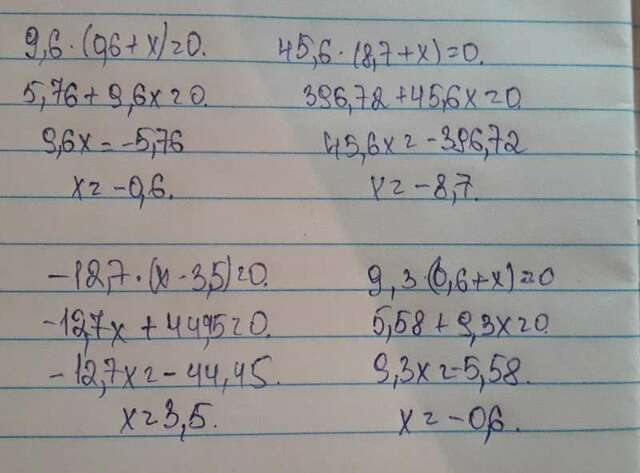 9,6 · (0,6 + x) = 0.
5,76 + 9,6x = 0.
9,6x = -5,76
x = -0,6.
45,6 · (8,7 + x) = 0.
396,72 + 45,6x = 0
45,6x = -396,72
x = -8,7.
-12,7 · (x - 3,5) = 0.
-12,7x + 44,45 = 0.
-12,7x = -44,45.
x = 3,5.
9,3 · (0,6 + x) = 0
5,58 + 9,3x = 0.
9,3x = -5,58.
x = -0,6.